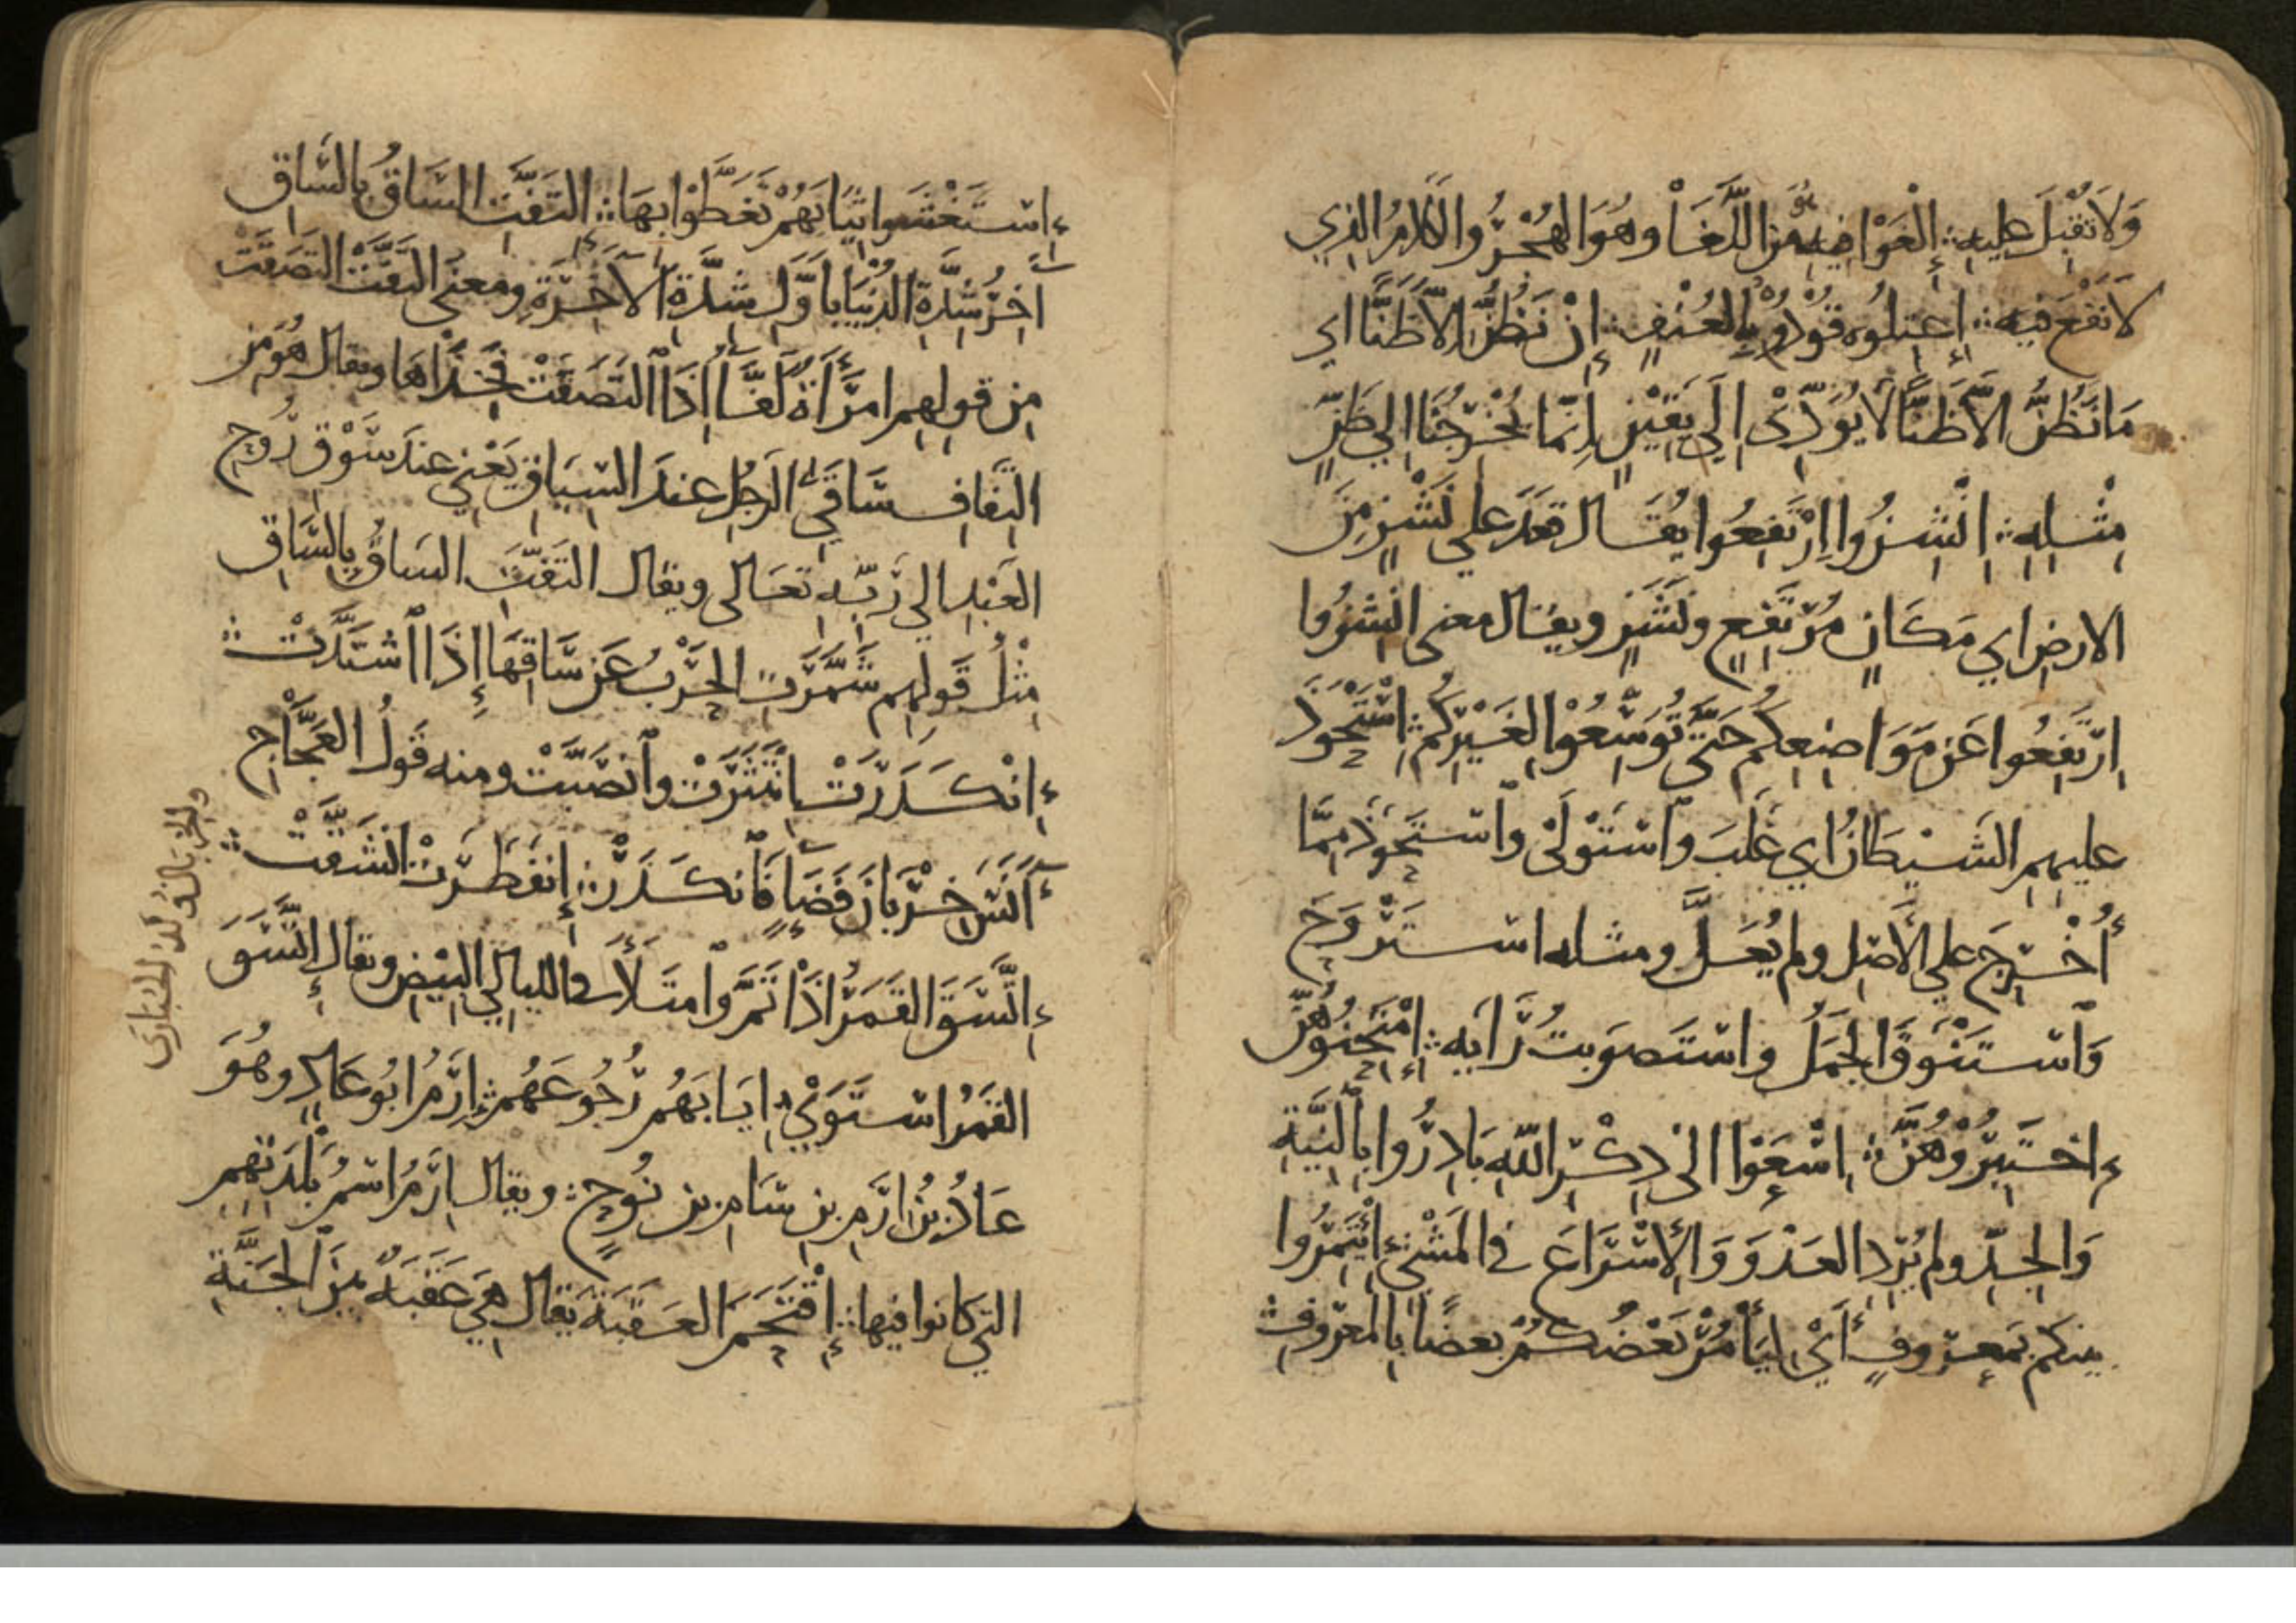 وَلَا تَقْبَلَ عليه ∴ إِلْغَوْا فِيهِ هُوَ مِنَ اللَّغَا وهُوَ الهُجْرُ والكَلَامُ الذِي
لَا نَفْعَ فِيه ∴ إِعْتِلُوه قُوْدُوْهُ بِالعُنْفِ ∴ إِنْ نَظُنُّ إِلَّا ظَنًّا اي
مَا نَظُنُّ الَّا ظَنًّا لَا يُوَدِّيْ اِلَى يَقِيْنٍ إِنَّمَا يُخْرِجُنَا اِلي ظَنٍّ
مِثْلِهِ ∴ انْشِزُوا اِرْتَفِعُوا يُقَال قَعَدَ علي نَشْزٍ مِنَ
الارضِ اي مَكَانٍ مُرْتَفِعٍ ونَشَزٍ ويقال معنى انْشِزُوا
اِرْتَفِعُوا عَن مَوَاضِعِكُم حَتَّى تُوَسِّعُوْا لِغَيْرِكُم ∴ اسْتَحْوَذَ
عليهِمِ الشَيْطَانُ اي غَلَبَ وٱسْتَوْلَىْ وٱسْتَحْوَذَ مِمَّا
أُخْرِجَ علي الأَصْلِ ولم يُعَلَّ ومثله اسْتَرْوَحَ
وَٱسْتَنْوَقَ الجَمَلُ واسْتَصْوَبتُ رَأيَه ∴ إِمْتَحِنُوْهُنَّ
إِخْتَبِرُوْهُنَّ ∴ اسْعَوْا الى ذِكْرِ اللَّهِ بَادِرُوا بِالنِيَّةِ
وَالجِدِّ ولم يُرِدِ العَدْوَ وَالإِسْرَاعَ في المَشْيِ ∴ ائْتَمِرُوا
بينكم بمَعروفٍ أَيْ لِيَأْمُرْ بَعْضُكُمْ بعضًا بِالمَعْرُوفِ ∴
إسْتَغْشَوا ثِيَابَهُمْ تَغَطَّوْا بِهَا ∴ التَفَّتِ السَاقُ بِالسَّاقِ
آخِرُ شِدَّةِ الدُنْيَا بِأَوَّلِ شِدَّةِ الآخِرَةِ ومعنى التَفَّتْ التَصَقَتْ
مِن قولِهِم امرَأَةٌ لَفَّاءُ إِذَا التَصَقَتْ فَخِذَاهَا ويقال هُوَ مِنَ
التِفَافِ سَاقَيِ الرَجُلِ عندَ السِيَاقِ يَعْنِي عندَ سَوْق رُوحِ
العَبْدِ اِلي رَبِّهِ تعَالى ويقال التَفَّتِ السَاقُ بِالسَّاقِ
مِثْلُ قَولِهِم شَمَّرَتِ الحَرْبُ عَن سَاقِهَا إِذَا ٱشْتَدَّتْ ∴
إِنْكَدَرَتْ انْتَثَرَتْ وٱنْصَبَّتْ ومنه قَولُ العَجَّاجِ
آنَسَ خِرْبَانَ فَضَاءٍ فَٱنكَدَرْ ∴ إِنفَطَرَتْ انْشَقَّتْ ∴
إِتَّسَقَ القَمَرُ إِذَا تَمَّ وٱمتَلَأَ في الليالي البِيْضِ ويقال إتَّسَقَ
القَمَرُ اسْتَوَىْ ∴ اِيَابَهُم رُجُوعَهُم ∴ اِرَمُ ابُو عَادٍ وهُوَ
عَادُ بنُ ارَمِ بنِ سَامِ بنِ نُوحٍ ∴ ويقال اِرَمُ اسْمُ بَلْدَتِهِم
التِي كَانوا فيها ∴ إِقْتَحَمَ العَقَبَةَ يقال هِيَ عَقَبَةٌ بينَ الجَنَّةِ